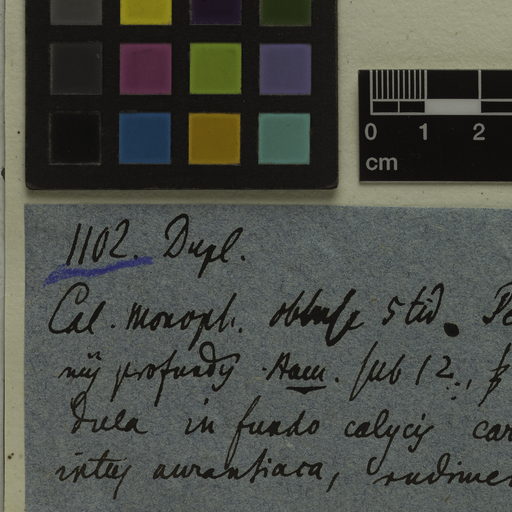 0 1 2
cm
1102. Dupl.
Cal. monoph. obtuse 5 tid.
nij profundij. Stam. sub 12.,
dula in fundo calycij car
intus aurantiaca, rudimen